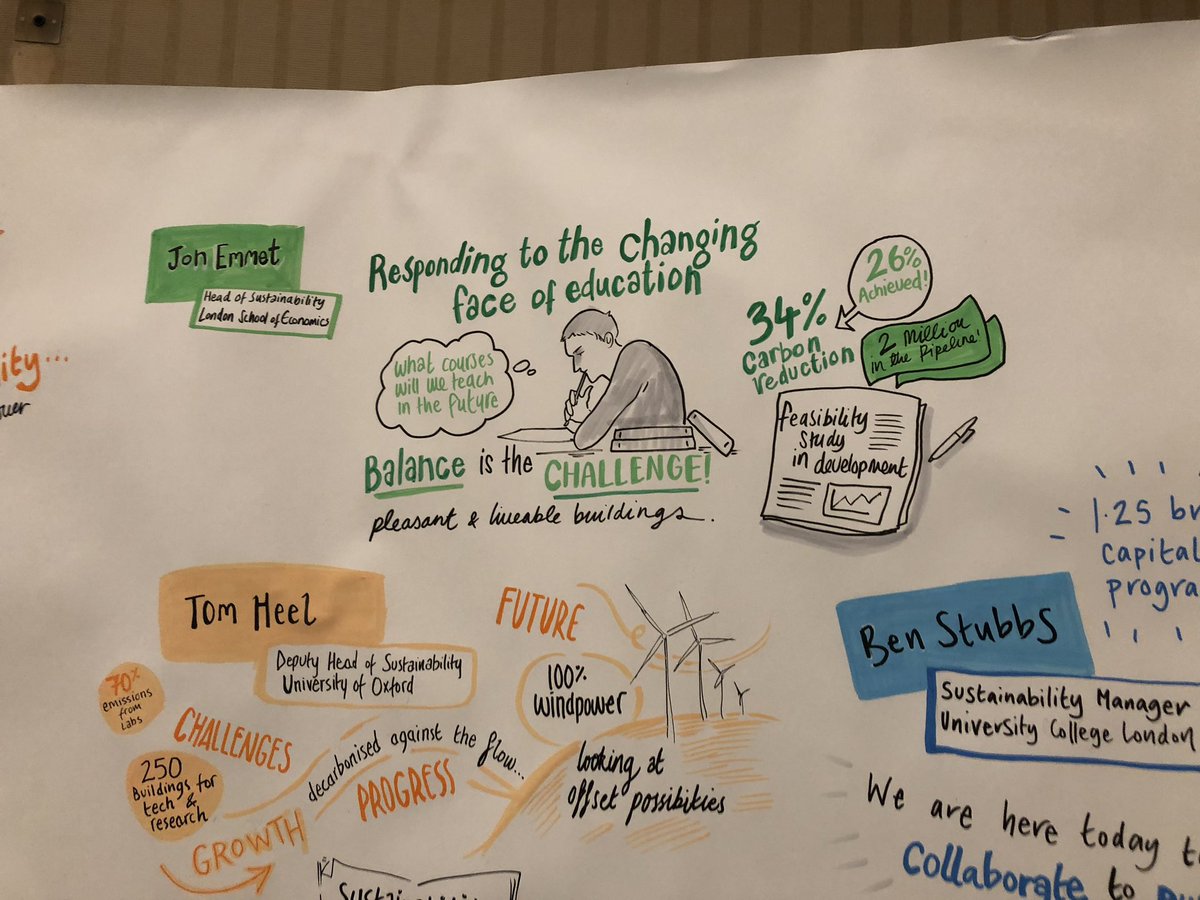 Jon Emmet
Head of Sustainability
London School of Economics
Responding to the changing
face of education
What courses
will we teach
in the future
Balance is the CHALLENGE!
pleasant & liveable buildings.
34%
Carbon
reduction
26%
Achieved!
2 Million
in the Pipeline!
feasibility
study
in development
Tom Heel
Deputy Head of Sustainability
University of Oxford
70%
emissions
from
Labs
CHALLENGES
250
Buildings for
tech &
research
GROWTH
decarbonised against the flow...
PROGRESS
FUTURE
100%
windpower
looking at
offset possibilities
1.25 b
Capital
progra
Ben Stubbs
Sustainability Manager
University College London
We are here today t
Collaborate to
ity...